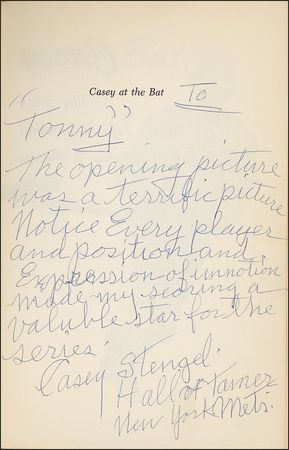 Casey at the Bat
To
"Tonny"
The opening picture
was a terrific picture
Notice Every player
and position and
Expression of
made my scoring a
valuble star for the
series.
Casey Stengel.
Hall of Famer
New York Mets.